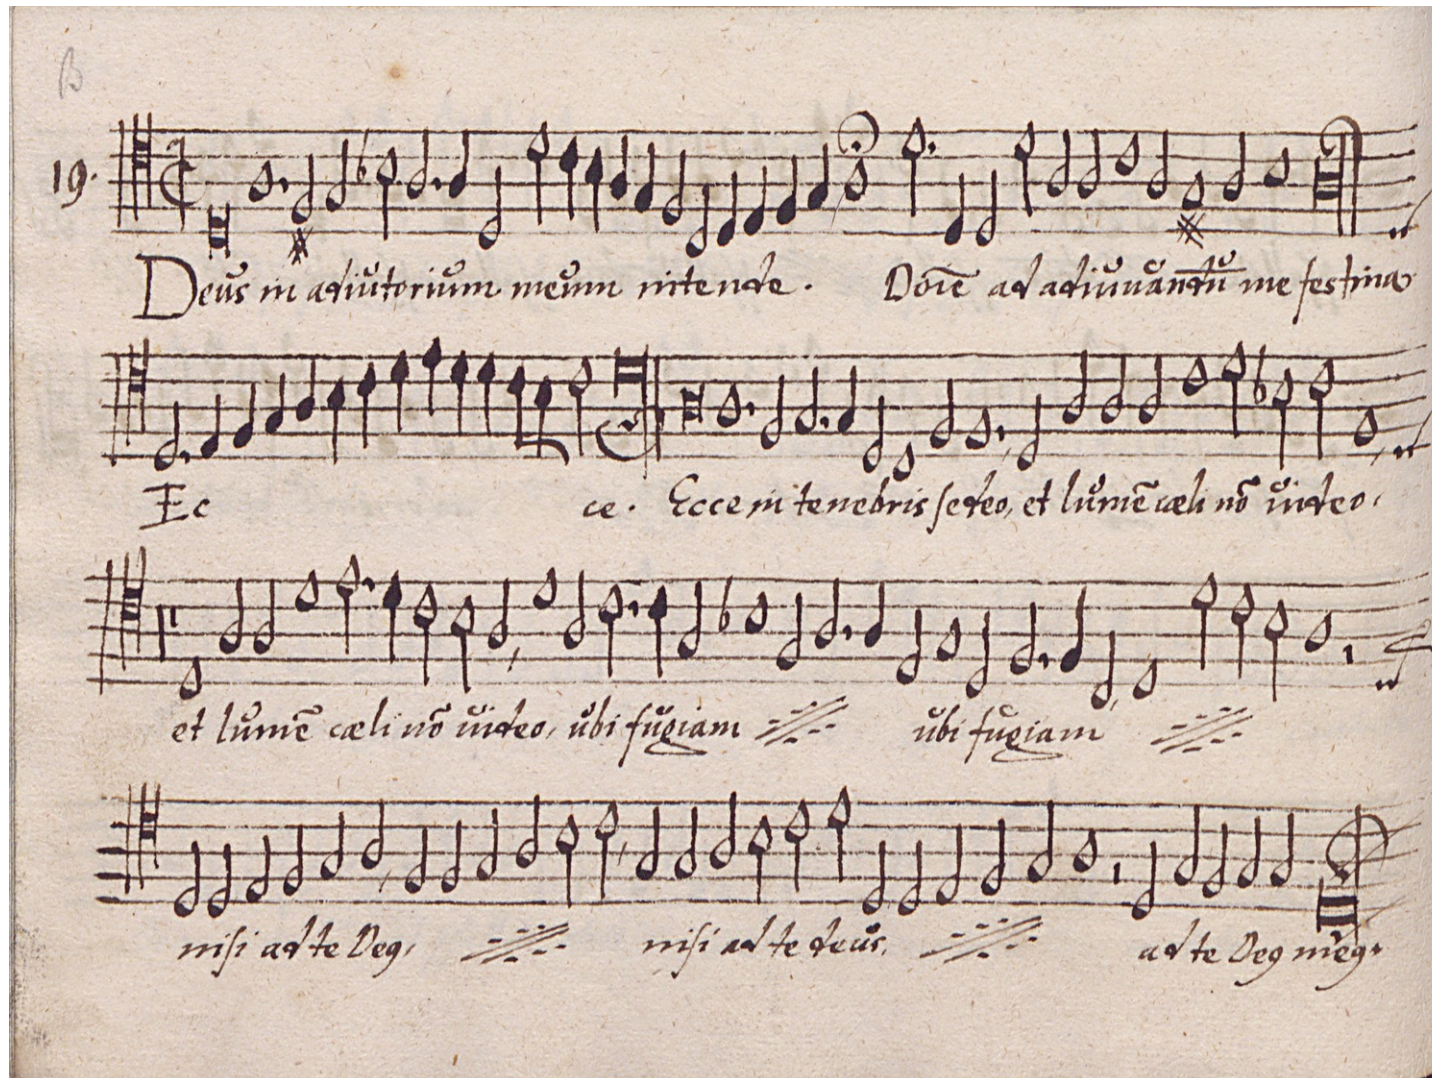 B
19.
Deus in adiutorium meum intende. Doīe ad adiuuandū me festina
Ec ce. Ecce in tenebris sedeo, et lumē cæli nō uideo,
et lumē cæli nō uideo, ubi fugiam ubi fugiam
nisi ad te Deꝰ, nisi ad te deus. ad te Deꝰ meꝰ.